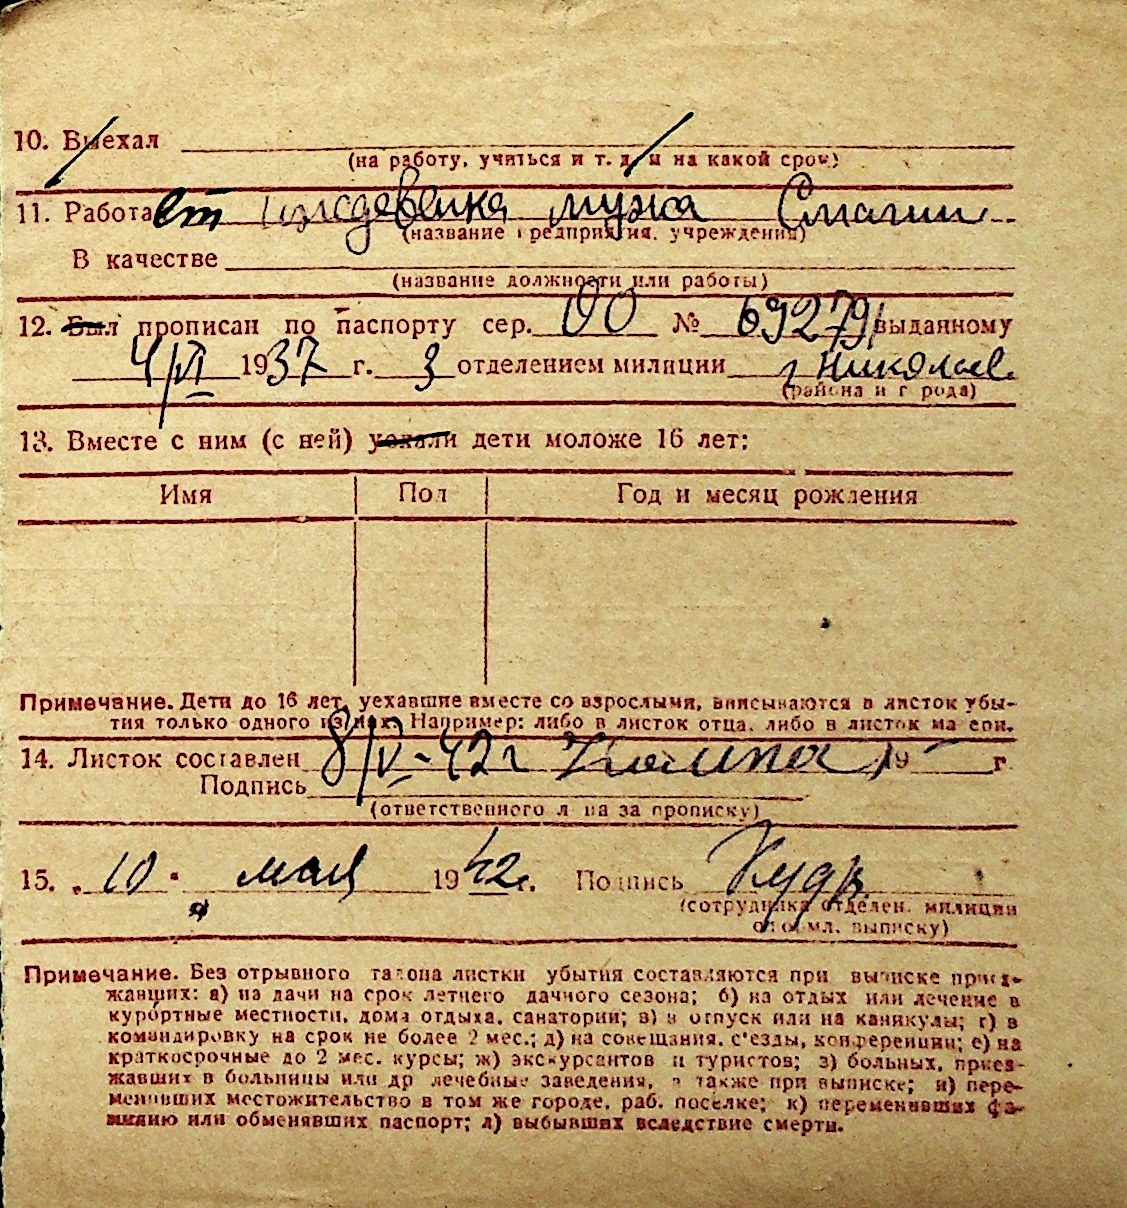 10. Выехал
(на работу, учиться и т. д. и на какой срок)
11. Работает иждевенка мужа
(название предприятия, учреждения)
В качестве
(название должности или работы)
12. Был прописан по паспорту сер. № 69279 выданному
4/VI 1937 г. 3 отделением милиции г Николаев
(района и города)
13. Вместе с ним (с ней) уехали дети моложе 16 лет:
Имя Пол Год и месяц рождения
Примечание. Дети до 16 лет, уехавшие вместе со взрослыми, вписываются в листок убы-
тия только одного из них. Например: либо в листок отца, либо в листок матери.
14. Листок составлен 8/IV-42 г 19 г
Подпись
(ответственного лица за прописку)
15. „10" мая 1942 г. Подпись
(сотрудника отделен. милиции
оформл. выписку)
Примечание. Без отрывного талона листки убытия составляются при выписке приез-
жавших: а) на дачи на срок летнего дачного сезона; б) на отдых или лечение в
курортные местности, дома отдыха, санатории; в) в отпуск или на каникулы; г) в
командировку на срок не более 2 мес.; д) на совещания, с'езды, конференции; е) на
краткосрочные до 2 мес. курсы; ж) экскурсантов и туристов; з) больных, приез-
жавших в больницы или др лечебные заведения, а также при выписке; и) пере-
менивших местожительство в том же городе, раб. поселке; к) переменивших фа-
милию или обменявших паспорт; л) выбывших вследствие смерти.